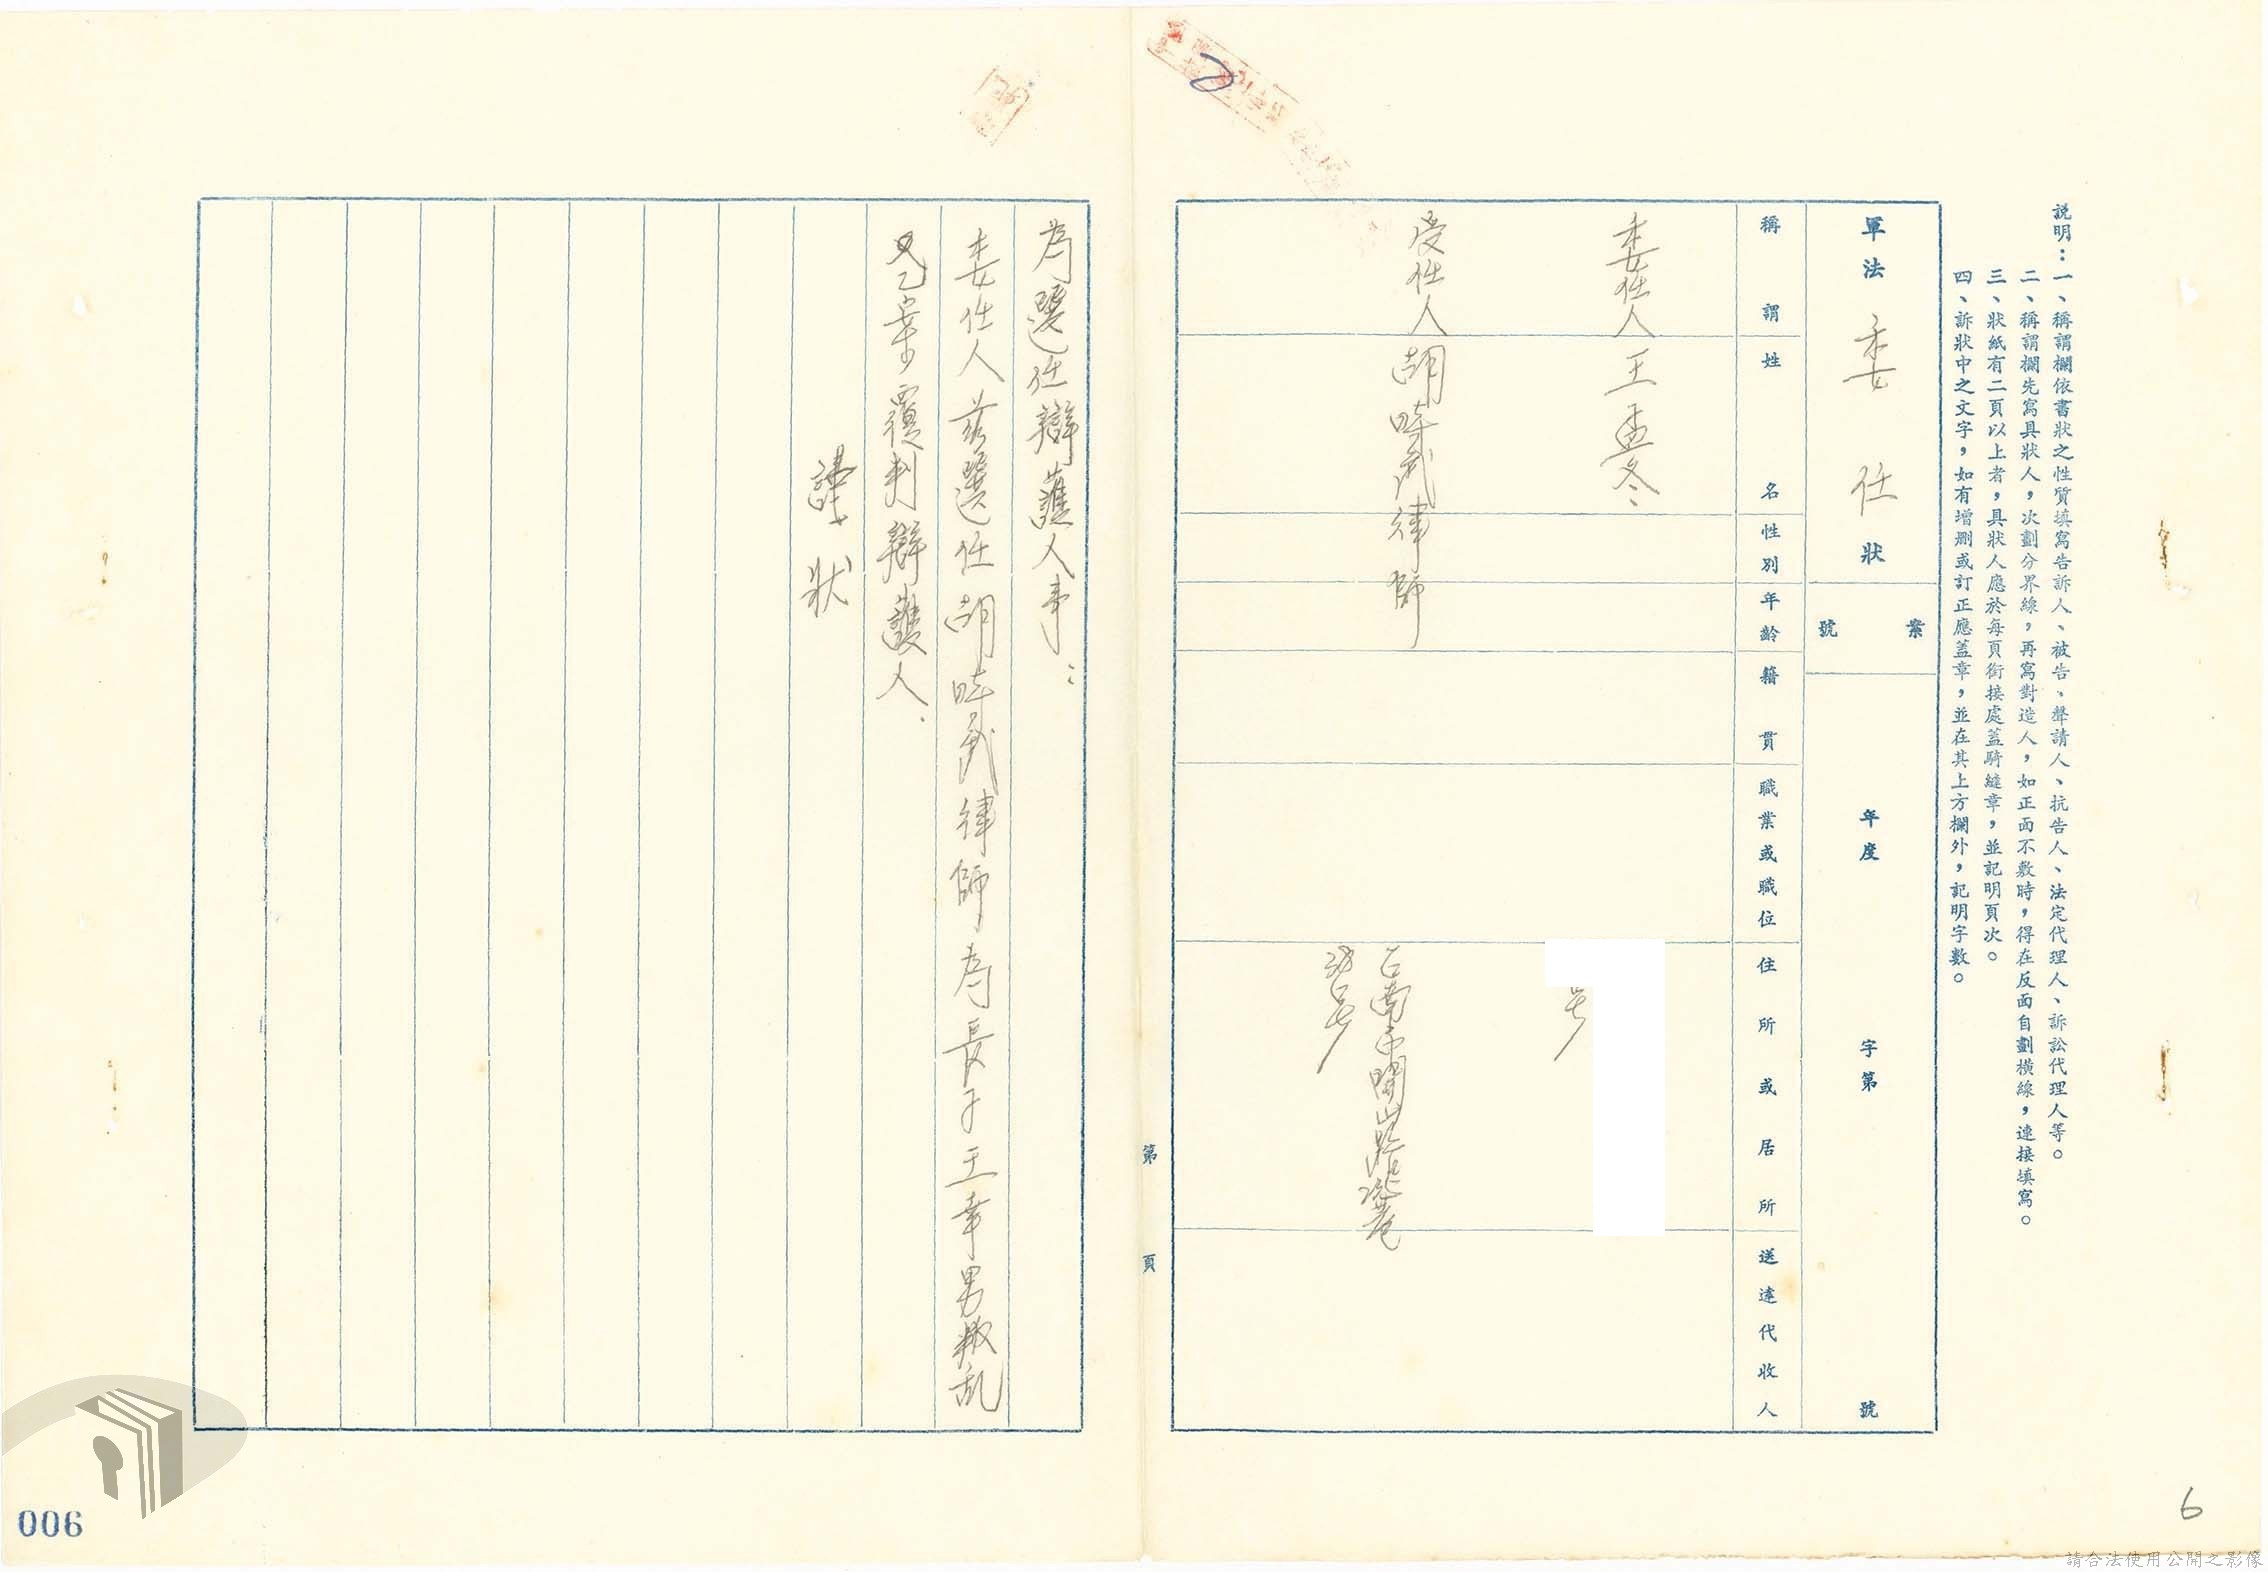 說明：一、稱謂欄依書狀之性質填寫告訴人、被告、聲請人、抗告人、法定代理人、訴訟代理人等。
二、稱謂欄先寫具狀人，次劃分界線，再寫對造人，如正面不敷時，得在反面自劃橫線，連接填寫。
三、狀紙有二頁以上者，具狀人應於每頁銜接處蓋騎縫章，並記明頁次。
四、訴狀中之文字，如有增刪或訂正應蓋章，並在其上方欄外，記明字數。
軍法 委任 狀
案號
年度 字第 號
稱謂 姓名 性別 年齡 籍貫 職業或職位 住所或居所 送達代收人
委任人 王孟冬 号
受任人 胡時武律師 台南市開山路
号
第 頁
為選任辯護人事：
委任人茲選任胡時武律師為長子王幸男叛乱
乙案覆判辯護人、
謹狀
006
6
請合法使用公開之影像